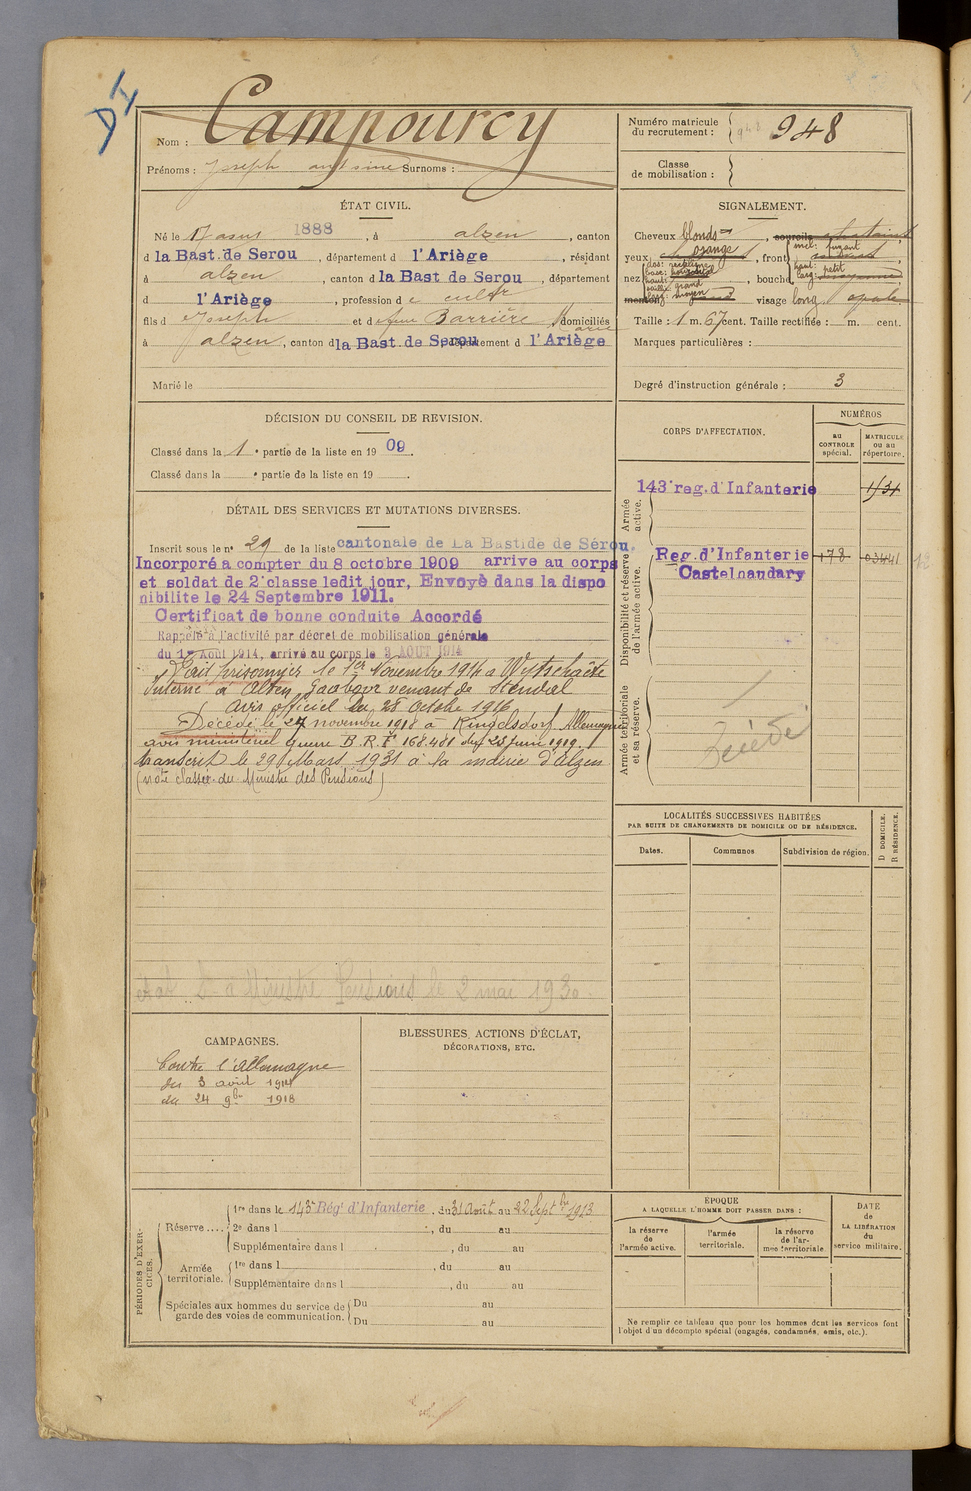 DI
Nom : Campourcy
Prénoms : Joseph antoine Surnoms :
Numéro matricule du recrutement : 948 948
Classe de mobilisation :
ÉTAT CIVIL.
Né le 17 1888, à alzen, canton
d la Bast. de Serou, département d l'Ariège, résidant
à alzen, canton d la Bast de Serou, département
d l'Ariège, profession de cultr
fils d Joseph et d Barrière Marie, domiciliés
à alzen, canton d la Bast. de Serou, département d l'Ariège
Marié le
SIGNALEMENT.
Cheveux blonds, sourcils chatains
yeux orange, front incl: fuyant
nez dos: rectiligne, bouche haut: petit
base:
haut:
saillie: grand
larg: moyen
menton, visage long
Taille : 1 m. 67 cent. Taille rectifiée : m. cent.
Marques particulières :
Degré d'instruction générale : 3
DÉCISION DU CONSEIL DE REVISION.
Classé dans la 1e partie de la liste en 1909.
Classé dans la e partie de la liste en 19 .
DÉTAIL DES SERVICES ET MUTATIONS DIVERSES.
Inscrit sous le n° 29 de la liste cantonale de La Bastide de Sérou,
Incorporé a compter du 8 octobre 1909 arrive au corps
et soldat de 2e classe ledit jour, Envoyè dans la dispo
nibilite le 24 Septembre 1911.
Certificat de bonne conduite Accordé
Rappelé à l'activité par décret de mobilisation générale
du 1er Août 1914, arrivé au corps le 3 AOUT 1914
Fait prisonnier le 1er Novembre 1914 a Wytschaëte
Interné à Alten Grabow venant de Stendal
Avis officiel du 28 Octobre 1916
Décédé le 24 novembre 1918 à Ringelsdorf, Allemagne
avis ministériel guerre B.R.F 168.481 du 23 Juin 1919.
transcrit le 29 Mars 1931 à la mairie d'Alzen
(note du Ministre des Pensions)
Ministre Pensions le 2 mai 1930.
CORPS D'AFFECTATION.
NUMÉROS
AU CONTROLE spécial.
MATRICULE ou au répertoire.
Armée active.
143e reg. d'Infanterie 1/31
Disponibilité et réserve de l'armée active.
Reg. d'Infanterie 178 03441 12
Castelnaudary
Armée territoriale et sa réserve.
Décédé
LOCALITÉS SUCCESSIVES HABITÉES
PAR SUITE DE CHANGEMENTS DE DOMICILE OU DE RÉSIDENCE.
Dates.
Communes
Subdivision de région.
D DOMICILE.
R RÉSIDENCE.
CAMPAGNES.
Contre l'Allemagne
du 3 août 1914
au 24 9bre 1918
BLESSURES, ACTIONS D'ÉCLAT,
DÉCORATIONS, ETC.
PÉRIODES D'EXERCICES.
Réserve ....
1re dans le 143e Rég. d'Infanterie, du 31 Août au 22 Septbre 1913
2e dans l , du au
Supplémentaire dans l , du au
Armée territoriale.
1re dans l , du au
Supplémentaire dans l , du au
Spéciales aux hommes du service de garde des voies de communication.
Du au
Du au
ÉPOQUE
A LAQUELLE L'HOMME DOIT PASSER DANS :
la réserve de l'armée active.
l'armée territoriale.
la réserve de l'armée territoriale
DATE de LA LIBÉRATION du service militaire.
Ne remplir ce tableau que pour les hommes dont les services font
l'objet d'un décompte spécial (engagés, condamnés, omis, etc.).